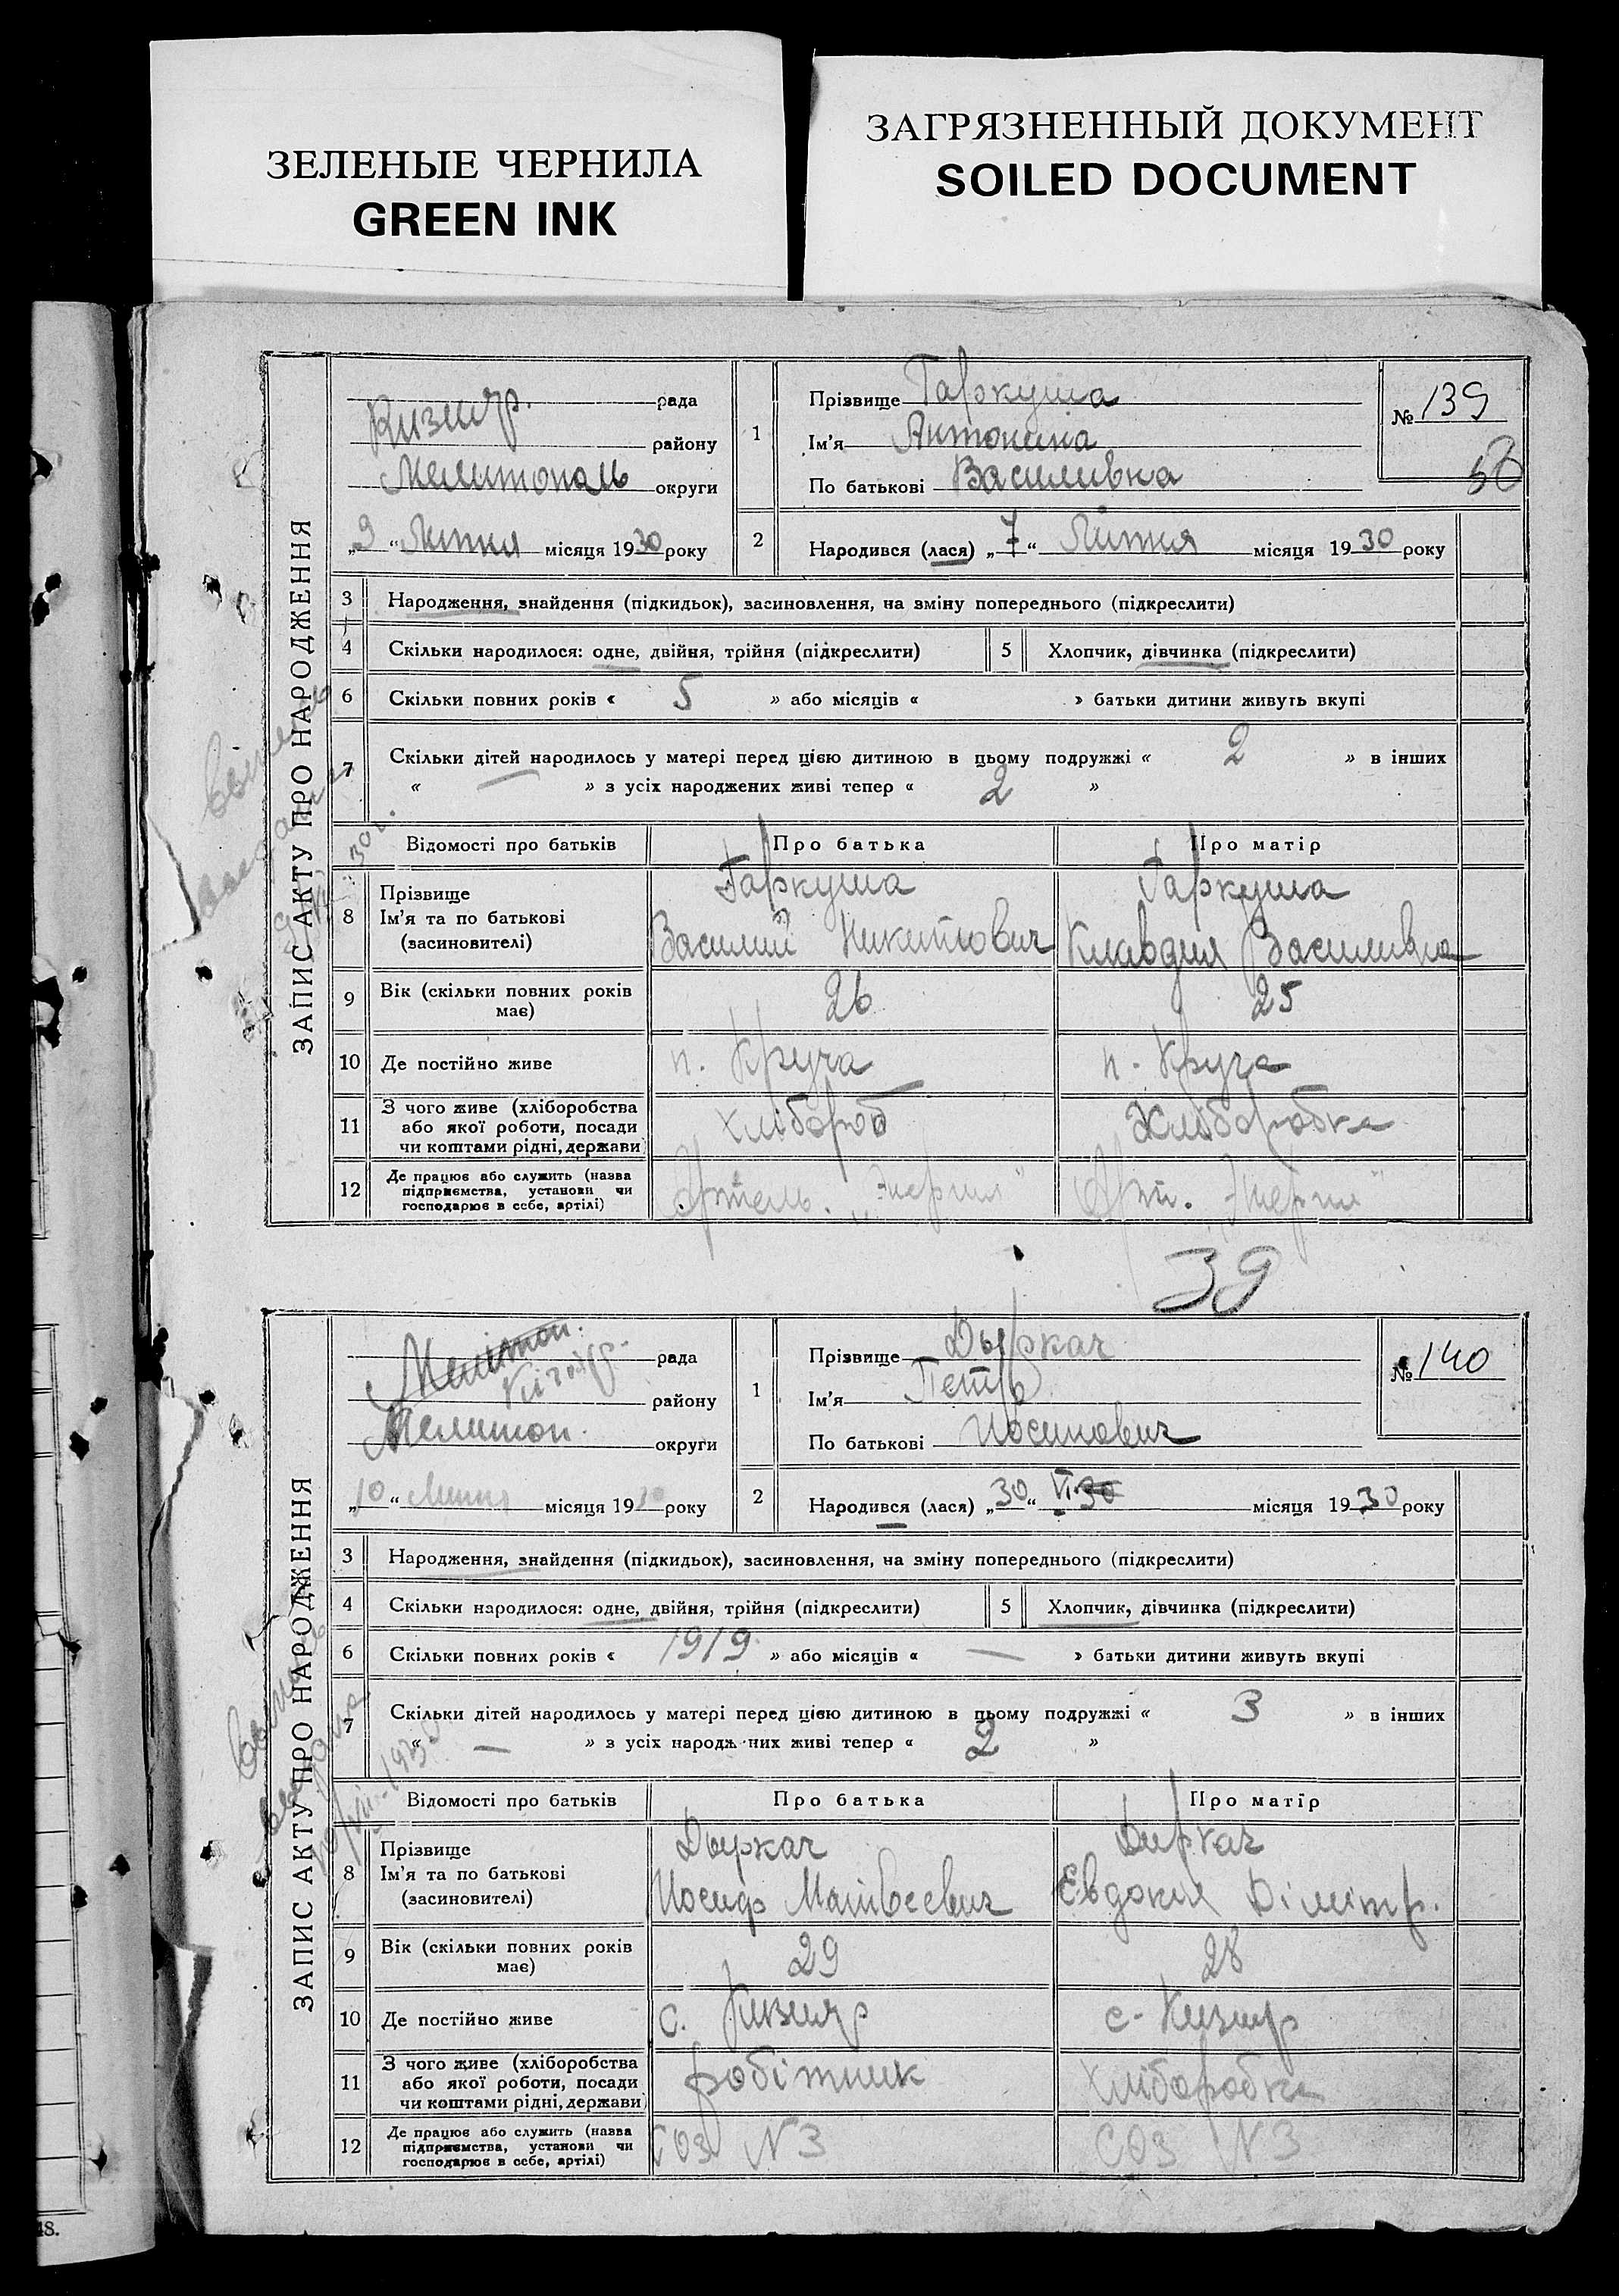 ЗЕЛЕНЫЕ ЧЕРНИЛА
GREEN INK
ЗАГРЯЗНЕННЫЙ ДОКУМЕНТ
SOILED DOCUMENT
ЗАПИС АКТУ ПРО НАРОДЖЕННЯ
Кизияр. рада
району
Мелитополь округи
„9“ Липня місяця 1930 року
1
Прізвище Гаркуша
Ім’я Антонина
По батькові Василивна
№ 139
56
2 Народився (лася) „7“ Липня місяця 1930 року
3 Народження, знайдення (підкидьок), засиновлення, на зміну попереднього (підкреслити)
4 Скільки народилося: одне, двійня, трійня (підкреслити) 5 Хлопчик, дівчинка (підкреслити)
6 Скільки повних років « 5 » або місяців « » батьки дитини живуть вкупі
7 Скільки дітей народилось у матері перед цією дитиною в цьому подружжі « 2 » в інших
« — » з усіх народжених живі тепер « 2 »
Відомості про батьків Про батька Про матір
8 Прізвище Гаркуша Гаркуша
Ім’я та по батькові Василий Никитович Клавдия Василивна
(засиновителі)
9 Вік (скільки повних років має) 26 25
10 Де постійно живе п. Круча п. Круча
11 З чого живе (хліборобства або якої роботи, посади чи коштами рідні, держави) хлібороб Хліборобка
12 Де працює або служить (назва підприємства, установи чи господарює в себе, артілі) Артель „Энергия“ Арт. „Энергия“
39
ЗАПИС АКТУ ПРО НАРОДЖЕННЯ
Мелітоп. рада
Кізіяр. району
Мелитоп. округи
„10“ Липня місяця 1930 року
1
Прізвище Дыркач
Ім’я Петр
По батькові Иосипович
№ 140
2 Народився (лася) „30“ VI 30 місяця 1930 року
3 Народження, знайдення (підкидьок), засиновлення, на зміну попереднього (підкреслити)
4 Скільки народилося: одне, двійня, трійня (підкреслити) 5 Хлопчик, дівчинка (підкреслити)
6 Скільки повних років « 1919 » або місяців « — » батьки дитини живуть вкупі
7 Скільки дітей народилось у матері перед цією дитиною в цьому подружжі « 3 » в інших
« — » з усіх народж них живі тепер « 2 »
Відомості про батьків Про батька Про матір
8 Прізвище Дыркач Диркач
Ім’я та по батькові Иосиф Матвеевич Евдокия Дімітр.
(засиновителі)
9 Вік (скільки повних років має) 29 28
10 Де постійно живе с. Кизияр с. Кизияр
11 З чого живе (хліборобства або якої роботи, посади чи коштами рідні, держави) робітник хліборобка
12 Де працює або служить (назва підприємства, установи чи господарює в себе, артілі) СОЗ N 3 СОЗ N 3
48.